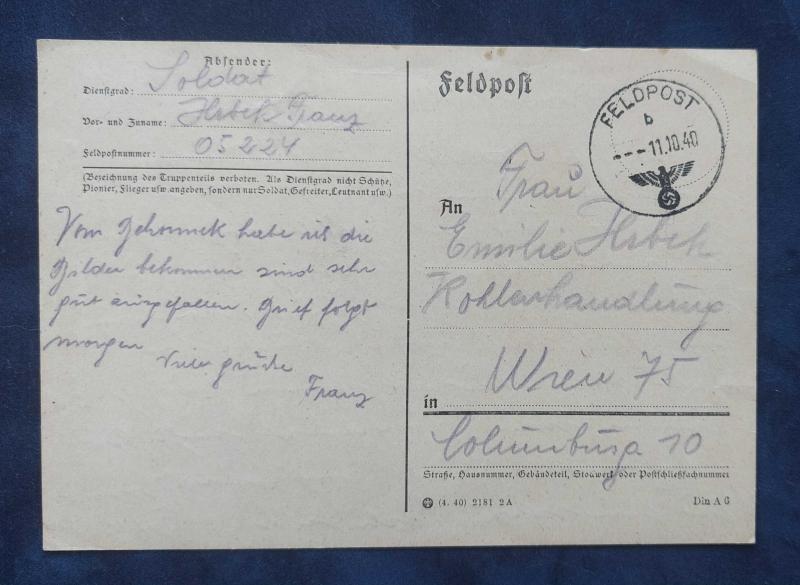 Absender:
Dienstgrad: Soldat
Vor- und Zuname: Hrbek Franz
Feldpostnummer: 05224
(Bezeichnung des Truppenteils verboten. Als Dienstgrad nicht Schütze,
Pionier, Flieger usw. angeben, sondern nur Soldat, Gefreiter, Leutnant usw.)
Vom habe ich die
Bilder bekommen sind sehr
gut ausgefallen. Brief folgt
morgen
Viele grüße
Franz
Feldpost
FELDPOST
b
---11.10.40
Frau
An
Emilie Hrbek
Kohlenhandlung
Wien 75
in
10
Straße, Hausnummer, Gebäudeteil, Stockwerk oder Postschließfachnummer
(4. 40) 2181 2A
Din A 6